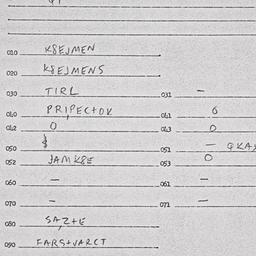 010 K8EJMEN
020 K8EJMENS
030 TIRL 031 -
040 PRIPEC+OV 041 6
042 0 043 0
050 $ 051 -
052 JAMK8E 053 0
060 - 061 -
070 - 071 -
080 SAZ+E
090 FARS+VARCT